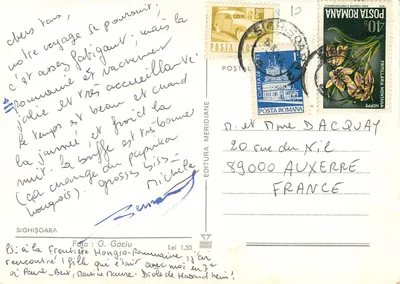 Chers tous,
notre voyage se poursuit;
c'est assez fatigant; mais la
Roumanie est vachement
jolie et très accueillante.
le temps est beau et chaud
la journée et froid la
nuit. la bouffe est très bonne
(ça change du paprika
hongrois). grosses bises
Michèle
SIGHIŞOARA
Foto : G. Gaciu
Lei 1,50
P.S: à la frontière Hongro-Roumaine, j'ai
rencontré 1 fille qui était avec moi en
à
EDITURA MERIDIANE
POSTA ROMANA
POSTA ROMANA
40 B
FRITILLARIA MONTANA
HOPPE
M. et Mme DACQUAY
20 rue du Nil
89000 AUXERRE
FRANCE